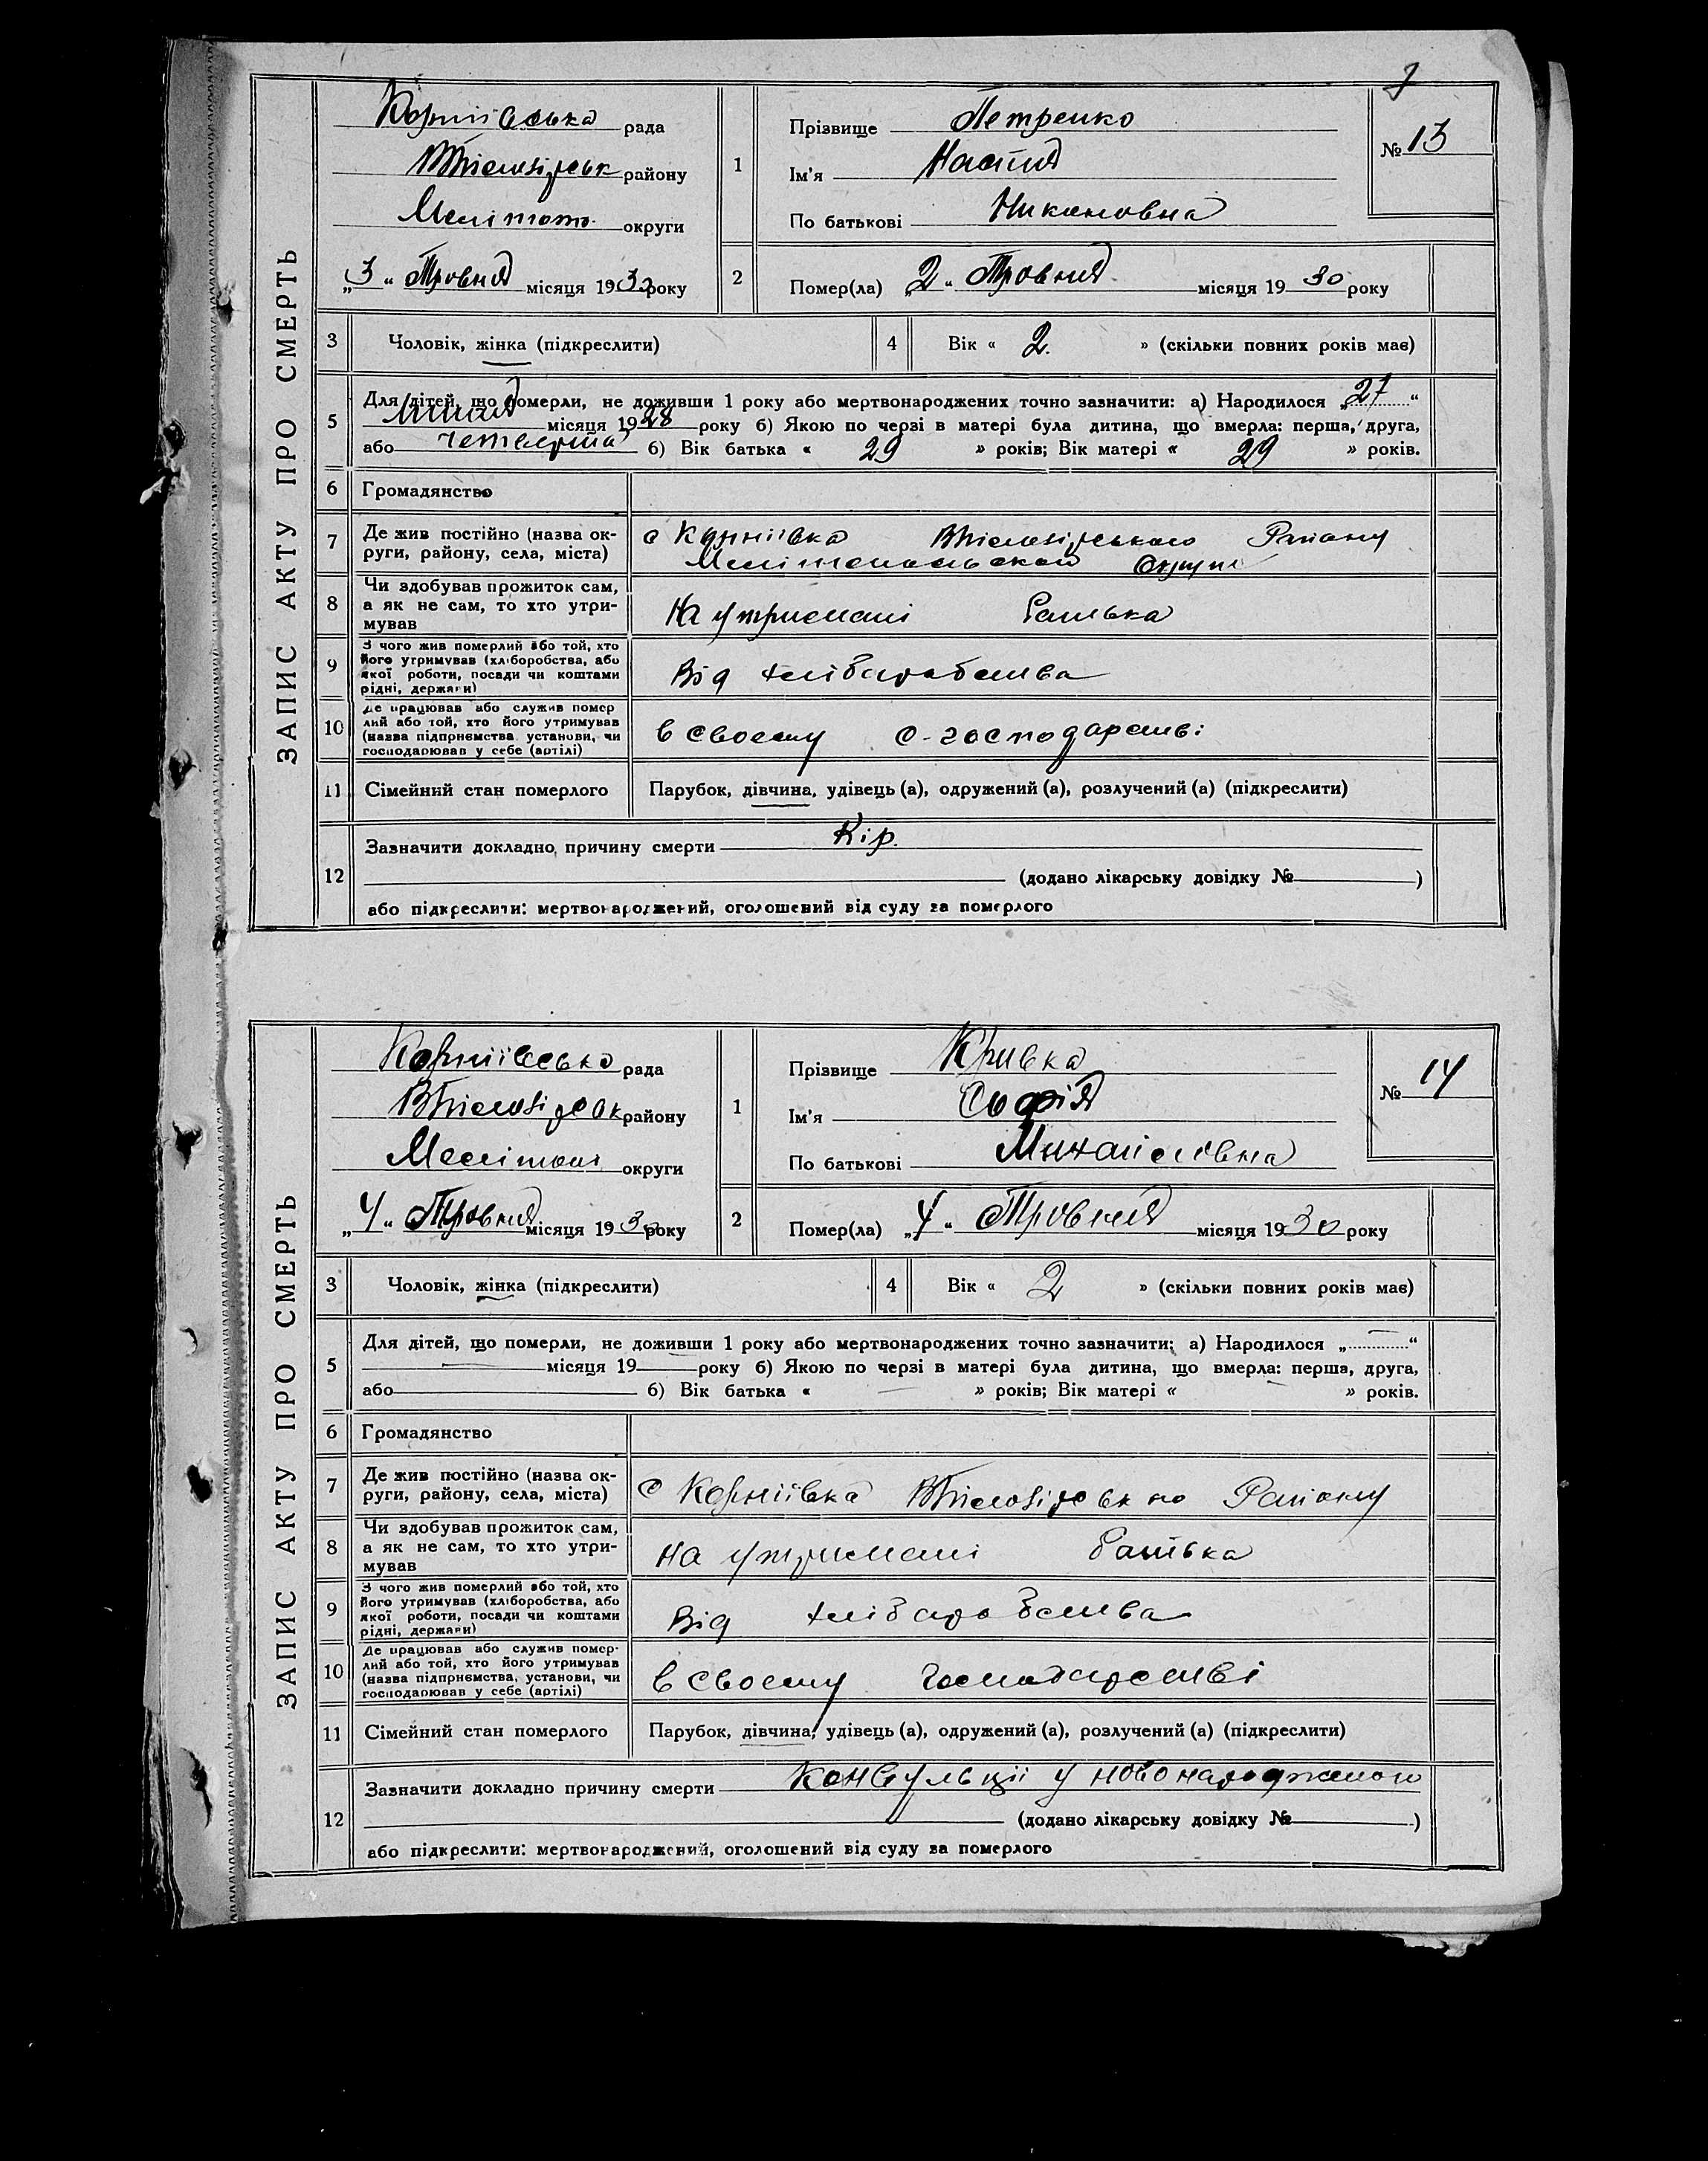 ЗАПИС АКТУ ПРО СМЕРТЬ
Корніївська рада
району
Мелітоп. округи
„3“ Тровня місяця 1930 року
1
Прізвище Петренко
Ім'я Настя
По батькові Никоновна
№ 13
2
Помер(ла) „2“ Тровня місяця 1930 року
3 Чоловік, жінка (підкреслити)
4 Вік « 2. » (скільки повних років має)
5 Для дітей, що померли, не доживши 1 року або мертвонароджених точно зазначити: а) Народилося „27“
місяця 1928 року б) Якою по черзі в матері була дитина, що вмерла: перша, друга,
або четверта б) Вік батька « 29 » років; Вік матері « 29 » років.
6 Громадянство
7 Де жив постійно (назва округи, району, села, міста)
с Корніївка Району
Округи
8 Чи здобував прожиток сам, а як не сам, то хто утримував
На утримані батька
9 З чого жив померлий або той, хто його утримував (хліборобства, або якої роботи, посади чи коштами рідні, держави)
Від хліборобства
10 Де працював або служив померлий або той, хто його утримував (назва підприємства, установи, чи господарював у себе (артілі)
в своему с-господарстві
11 Сімейний стан померлого
Парубок, дівчина, удівець (а), одружений (а), розлучений (а) (підкреслити)
12 Зазначити докладно причину смерти Кір.
(додано лікарську довідку № )
або підкреслити: мертвонароджений, оголошений від суду за померлого
ЗАПИС АКТУ ПРО СМЕРТЬ
Корніївсько рада
району
Мелітоп округи
„4“ Тровня місяця 1930 року
1
Прізвище Кривка
Ім'я Софія
По батькові Михайловна
№ 14
2
Помер(ла) „4“ Тровня місяця 1930 року
3 Чоловік, жінка (підкреслити)
4 Вік « 2 » (скільки повних років має)
5 Для дітей, що померли, не доживши 1 року або мертвонароджених точно зазначити: а) Народилося „—“
— місяця 19— року б) Якою по черзі в матері була дитина, що вмерла: перша, друга,
або б) Вік батька « — » років; Вік матері « — » років.
6 Громадянство
7 Де жив постійно (назва округи, району, села, міста)
с Корніївка Району
8 Чи здобував прожиток сам, а як не сам, то хто утримував
на утримані батька
9 З чого жив померлий або той, хто його утримував (хліборобства, або якої роботи, посади чи коштами рідні, держави)
Від хліборобства
10 Де працював або служив померлий або той, хто його утримував (назва підприємства, установи, чи господарював у себе (артілі)
в своему господарстві
11 Сімейний стан померлого
Парубок, дівчина, удівець (а), одружений (а), розлучений (а) (підкреслити)
12 Зазначити докладно причину смерти Конвульції у новонародженого
(додано лікарську довідку № )
або підкреслити: мертвонароджений, оголошений від суду за померлого